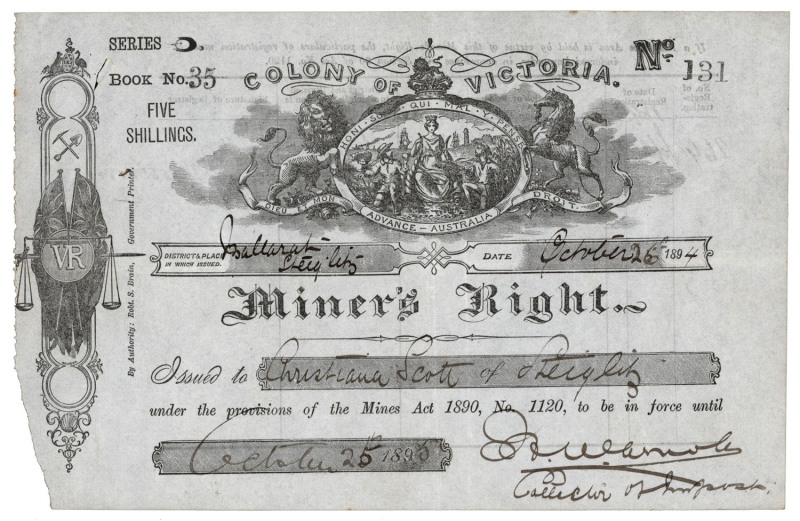 SERIES
BOOK No. 35
FIVE
SHILLINGS.
No. 131
COLONY OF VICTORIA.
HONI · SOIT · QUI · MAL · Y · PENSE
DIEU ET MON DROIT.
ADVANCE - AUSTRALIA
VR
By Authority: Robt. S. Brain, Government Printer.
DISTRICT & PLACE IN WHICH ISSUED.
Ballarat
Steiglitz
DATE October 26th 1894
Miner's Right.
Issued to Christiana Scott of Steiglitz
under the provisions of the Mines Act 1890, No. 1120, to be in force until
October 25th 1895
Collector of Imposts.